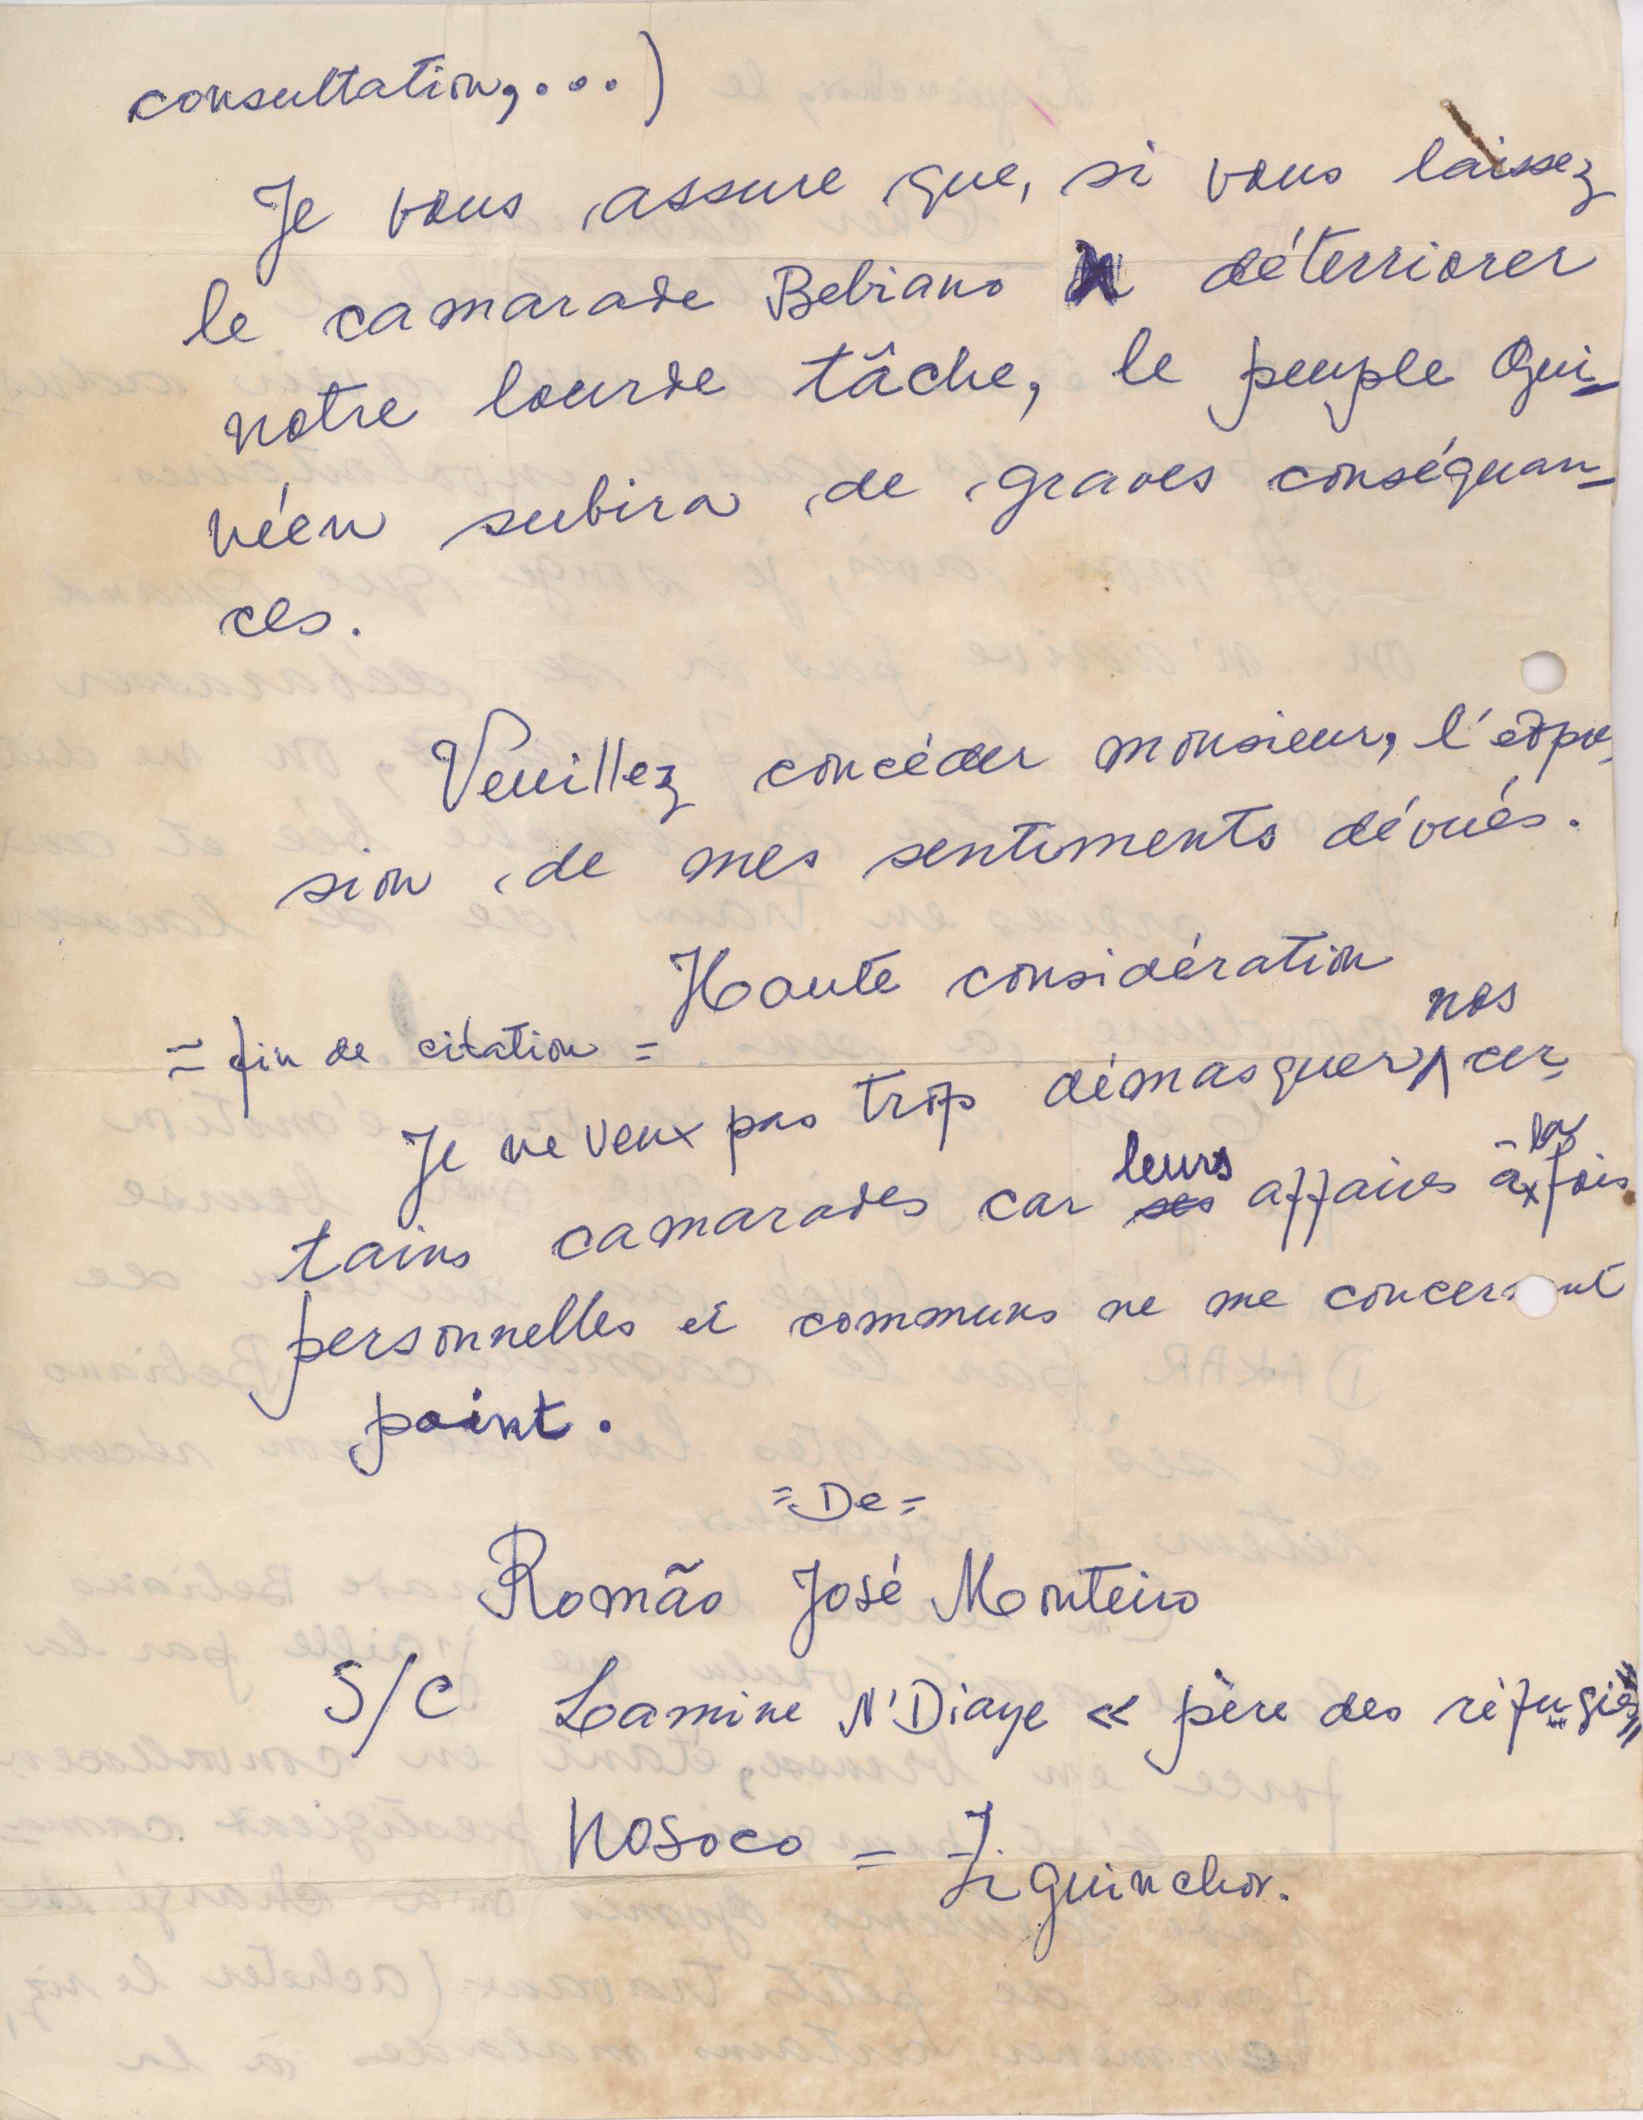 consultation,...)
Je vous assure que, si vous laissez
le camarade Bebiano déterriorer
notre lourde tâche, le peuple Gui-
néen subira de graves conséquan-
ces.
Veuillez concéder monsieur, l'expre-
sion de mes sentiments dévués.
Haute considération
= fin de citation =
nos
Je ne veux pas trop démasquer ∧ cer-
tains camarades car ses leurs affaires à la fois
personnelles et communs ne me concernent
point.
=De=
Romão José Monteiro
S/C Lamine N'Diaye « père des réfugiés »
Nosoco = Ziguinchor.